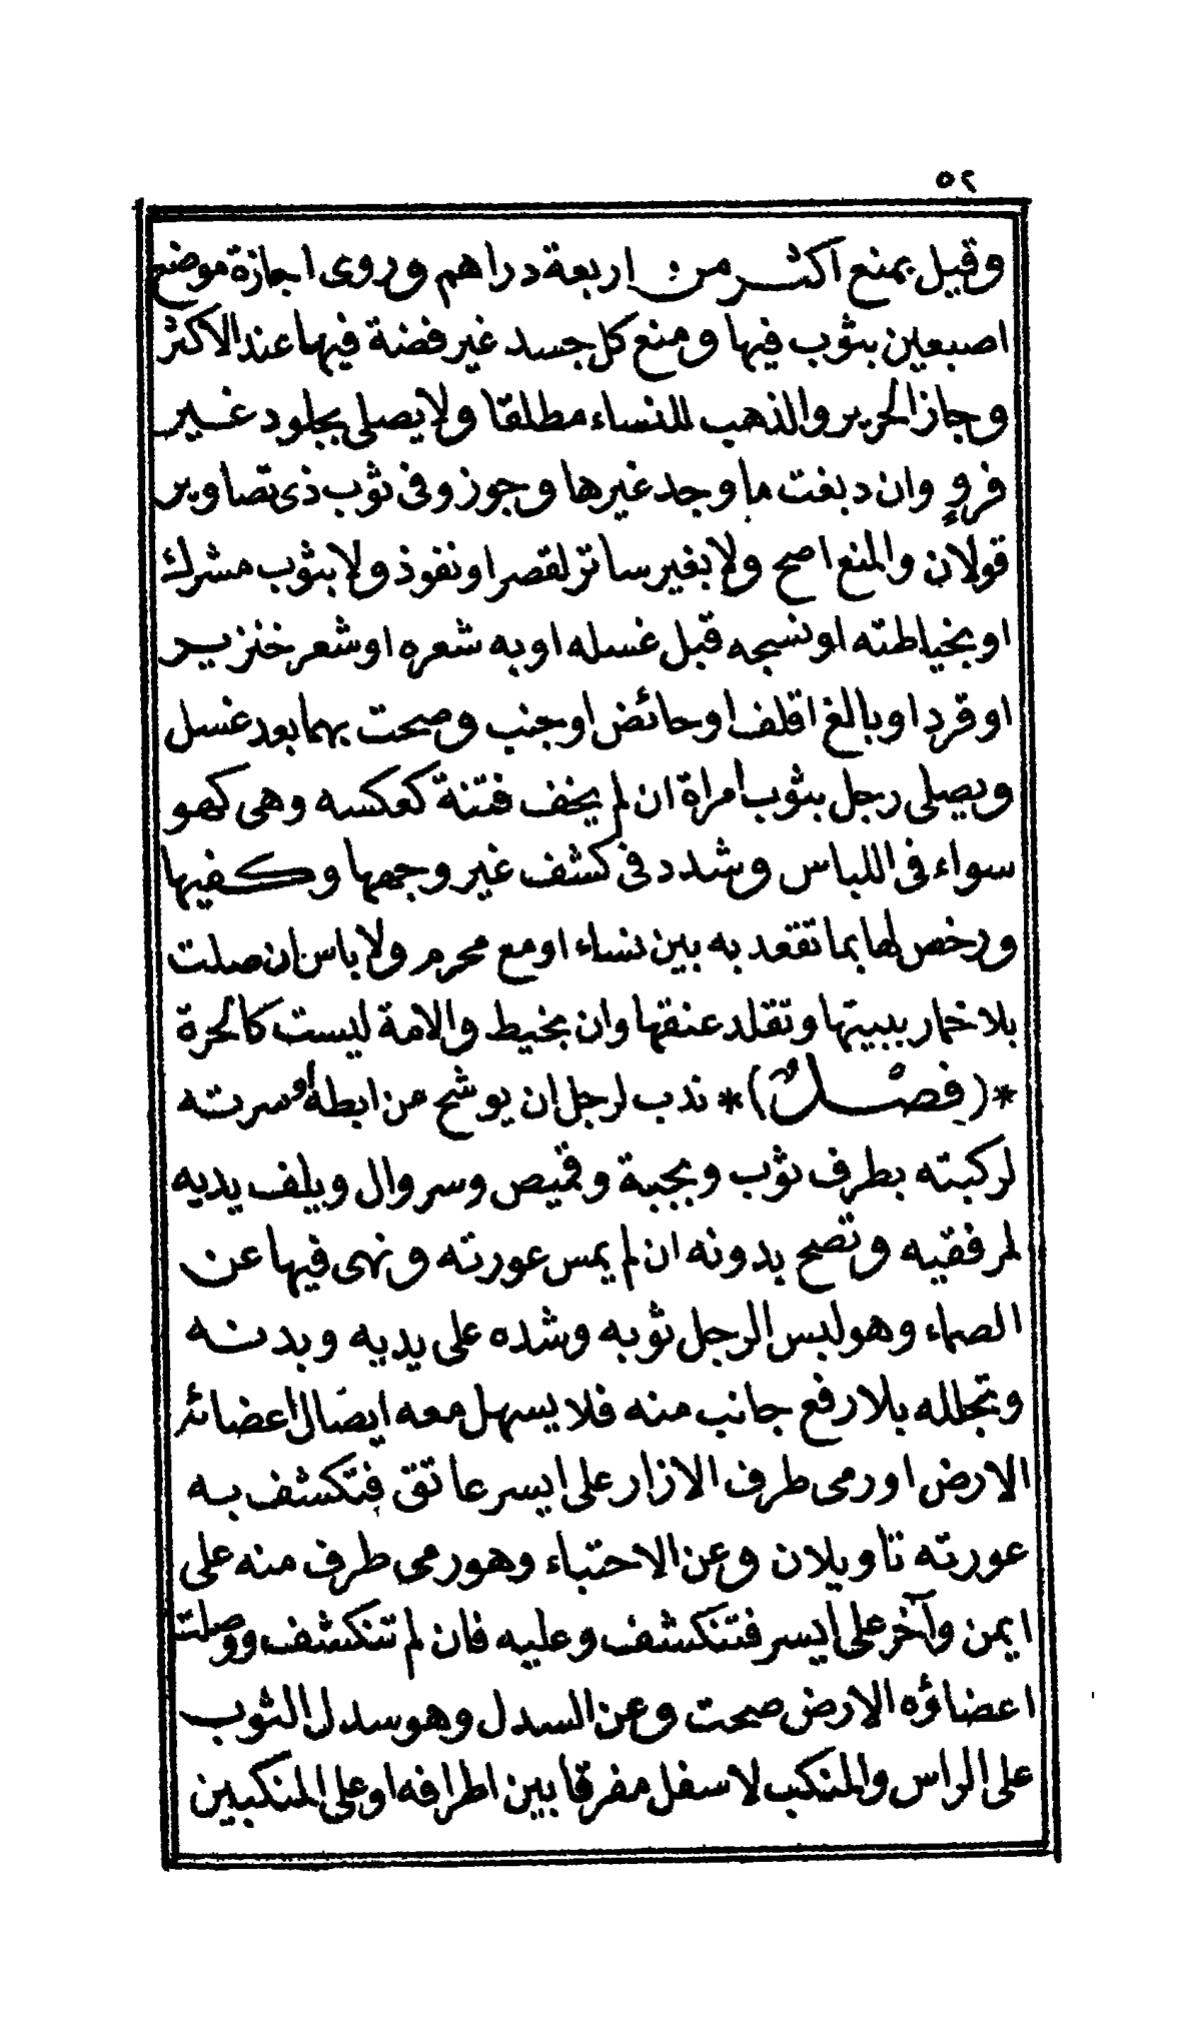 ٥٢
وقيل بمنع اكثر من اربعة دراهم وروى اجازة موضع
اصبعين بثوب فيها ومنع كل جسد غير فضة فيها عند الاكثر
وجاز الحرير والذهب للنساء مطلقا ولا يصلى بجلود غير
فرو وان دبغت ما وجد غيرها وجوز وفى ثوب ذى تصاوير
قولان والمنع اصح ولا بغير ساتر لقصر او نفوذ ولا بثوب مشرك
او بخياطته او نسجه قبل غسله او به شعره او شعر خنزير
او قرد او بالغ اقلف او حائض او جنب وصحت بهما بعد غسل
ويصلى رجل بثوب امراة ان لم يخف فتنة كعكسه وهى كهو
سواء فى اللباس وشدد فى كشف غير وجهها وكفيها
ورخص لها بما تقعد به بين نساء او مع محرم ولا باس ان صلت
بلا خمار ببيتها وتقلد عنقها وان بخيط والامة ليست كالحرة
*(فصل)* ندب لرجل ان يوشح من ابطه أو سرته
لركبته بطرف ثوب وبجبة وقميص وسروال ويلف يديه
لمرفقيه وتصح بدونه ان لم يمس عورته ونهى فيها عن
الصماء وهو لبس الرجل ثوبه وشده على يديه وبدنه
وتجلله بلا رفع جانب منه فلا يسهل معه ايصال اعضائه
الارض او رمى طرف الازار على ايسر عاتق فتكشف به
عورته تاويلان وعن الاحتباء وهو رمى طرف منه على
ايمن وآخر على ايسر فتنكشف وعليه فان لم تنكشف ووصلت
اعضاؤه الارض صحت وعن السدل وهو سدل الثوب
على الراس والمنكب لاسفل مفرقا بين اطرافه او على المنكبين